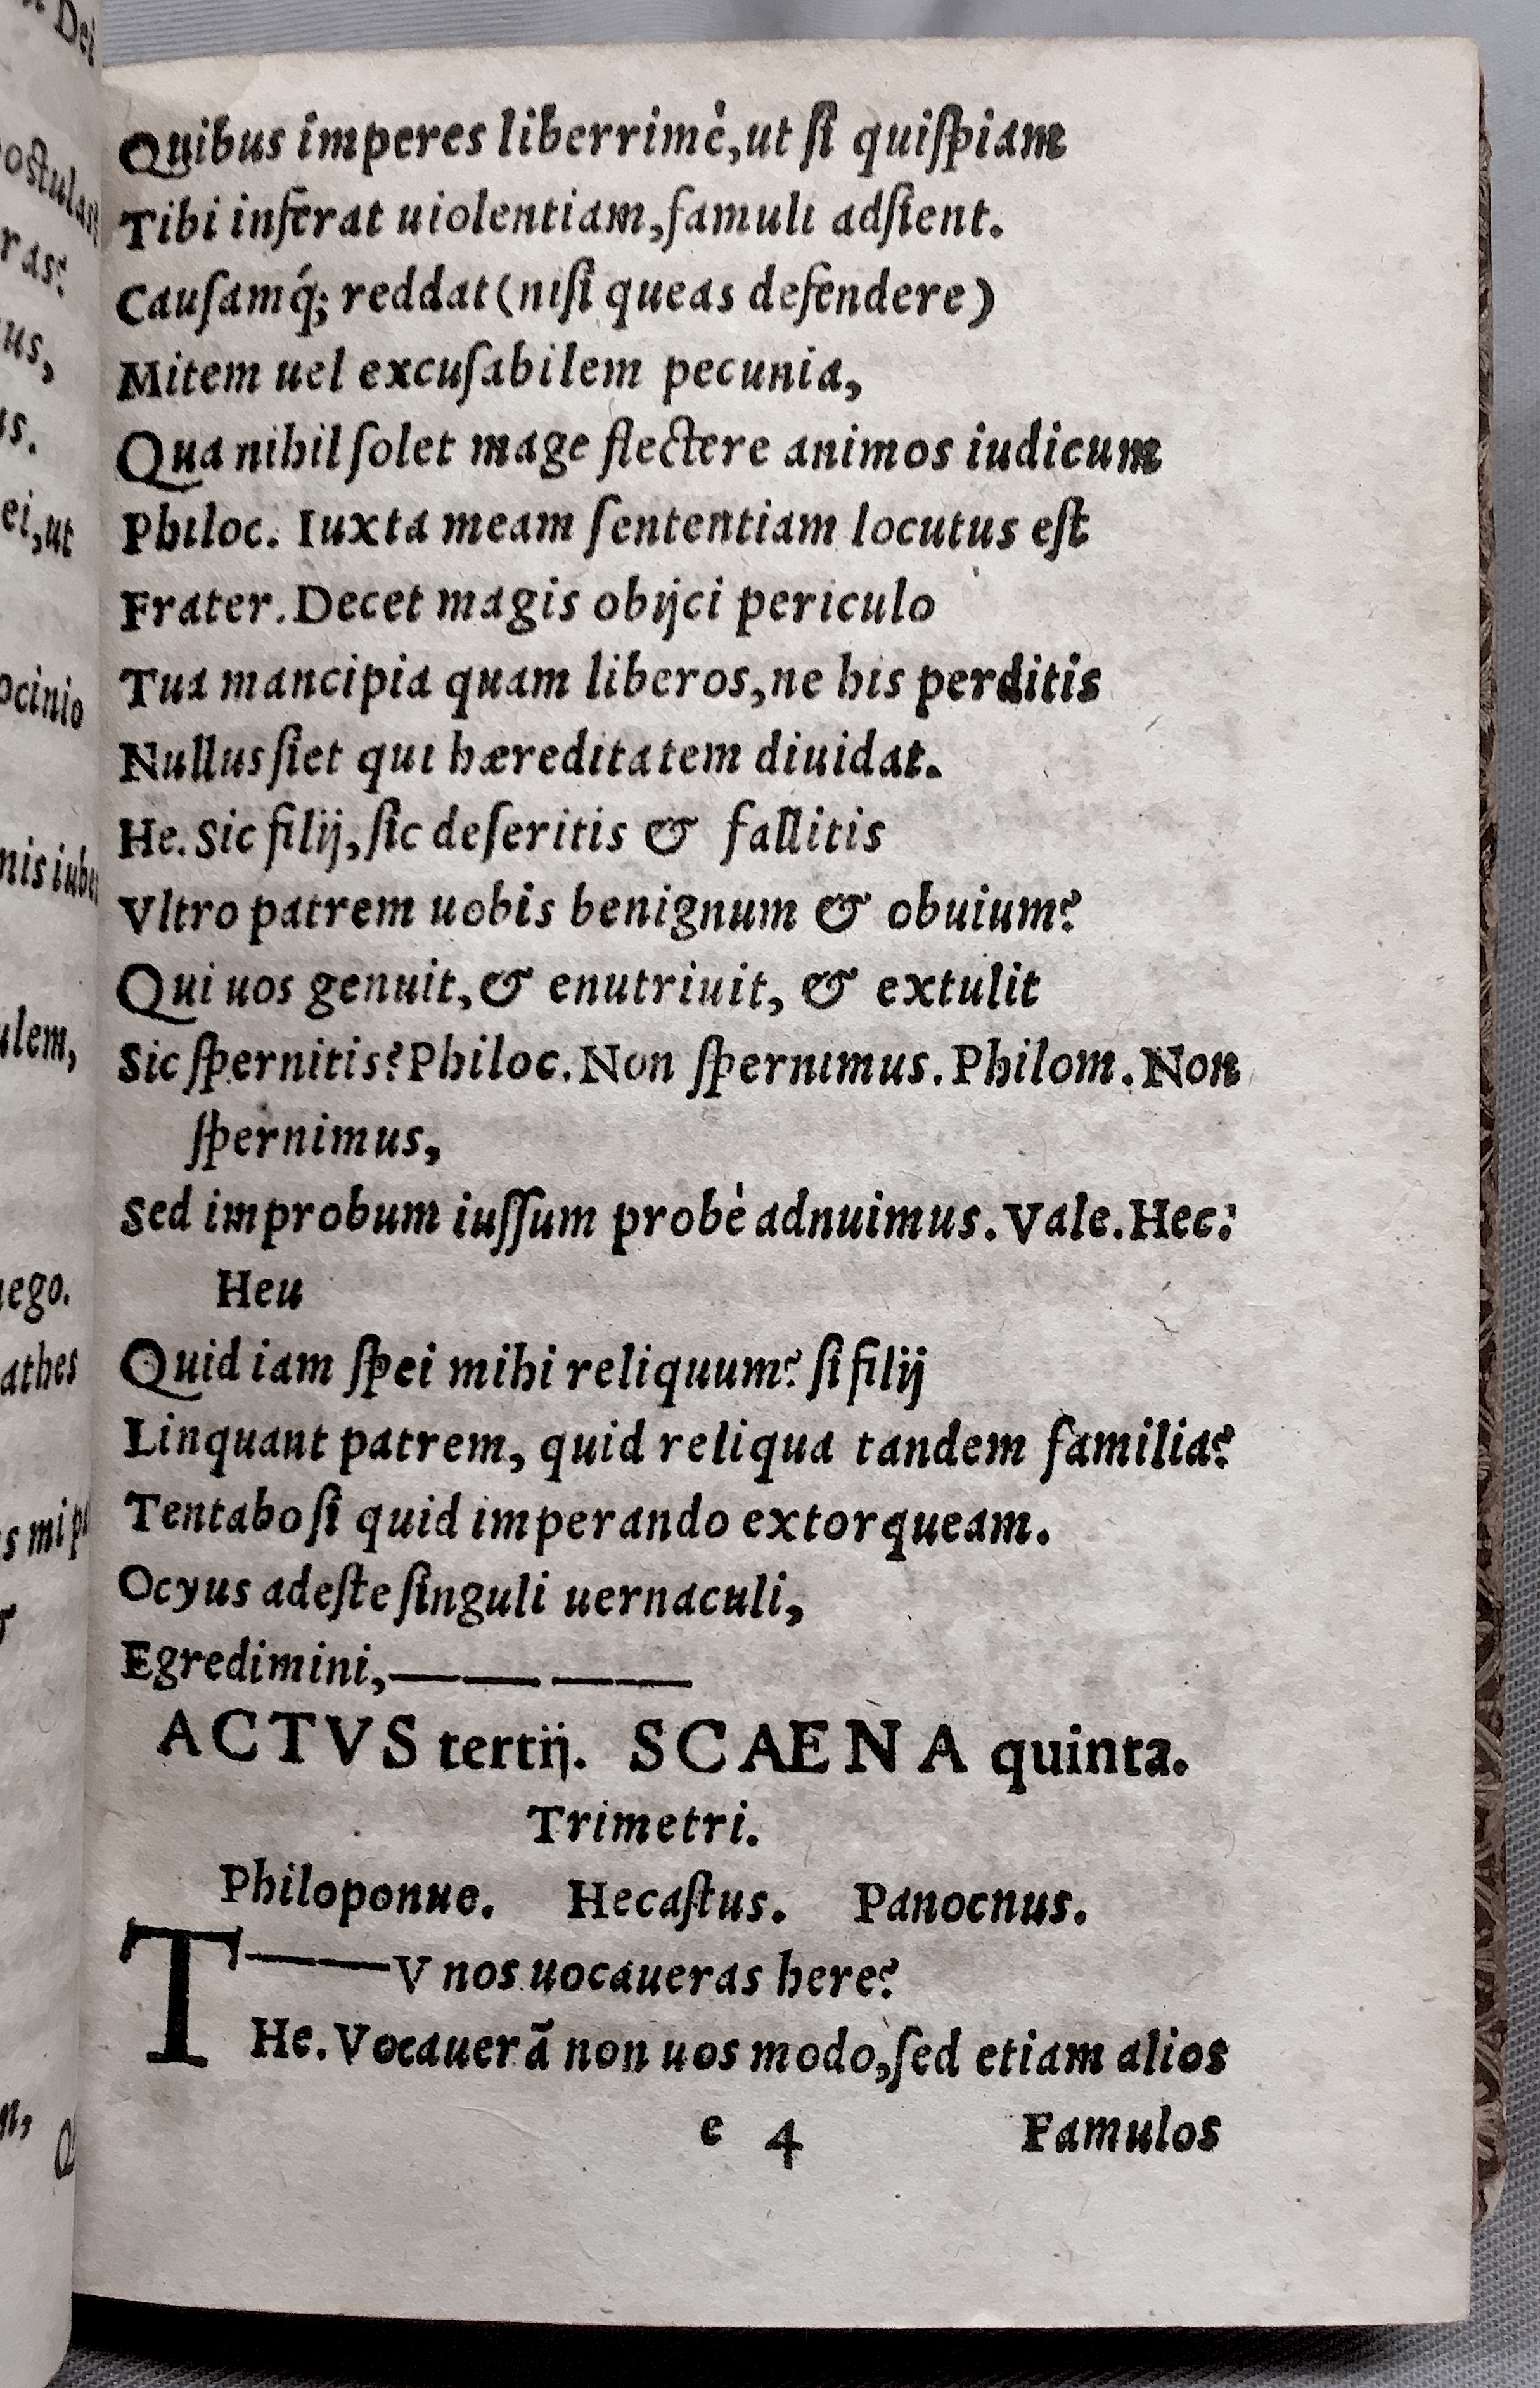 Quibus imperes liberrimè,ut ſi quiſpiam
Tibi inferat uiolentiam,famuli adſient.
Cauſamq́; reddat(niſi queas defendere)
Mitem uel excuſabilem pecunia,
Qua nihil ſolet mage flectere animos iudicum
Philoc. Iuxta meam ſententiam locutus eſt
Frater.Decet magis obijci periculo
Tua mancipia quam liberos,ne his perditis
Nullus ſiet qui hæreditatem diuidat.
He.Sic filij,ſic deſeritis & fallitis
Vltro patrem uobis benignum & obuium?
Qui uos genuit,& enutriuit, & extulit
Sic ſpernitis?Philoc.Non ſpernimus.Philom.Non
ſpernimus,
Sed improbum iuſſum probè adnuimus.Vale.Hec:
Heu
Quid iam ſpei mihi reliquum? ſi filij
Linquant patrem, quid reliqua tandem familia?
Tentabo ſi quid imperando extorqueam.
Ocyus adeſte ſinguli uernaculi,
Egredimini,—— ——
ACTVS tertij. SCAENA quinta.
Trimetri.
Philoponuo. Hecaſtus. Panocnus.
T——V nos uocaueras here?
He.Vocauerã non uos modo,ſed etiam alios
e 4 Famulos